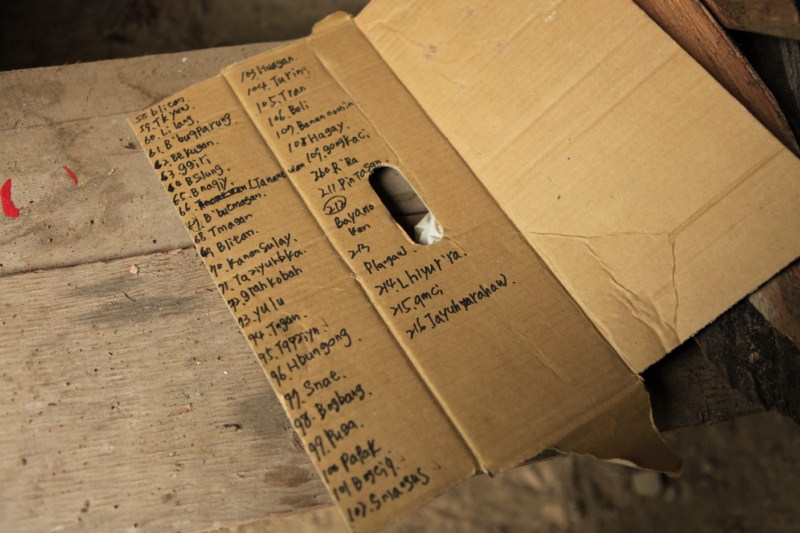 58. blicen.
59. Tkyuw.
60. Li lang.
61. B'buqParung
62. Bekugan.
63. ggiri
64. BSilung.
65. Bnaqiy.
66. LTananuwan
67. B'bucmasan.
68. Tmagan
69. Blican.
70. KananSulay.
71. Taziyuhbka.
72. grahkobah
93. yulu
94. Tngan.
95. Tappiyn.
96. Hbungong.
97. Snat.
98. Bngbang.
99. Pusa.
100. Papak
101. Bngciq.
102. Smangus
103. Huagan
104. Turing
105. Tran
106. Beli
107. Banan
108. Hagay.
109. gongkaci
260 R'Ra
211. PinTasan
212
Bayano
213
Plngaw.
214. Lhiyut'ra.
215. qmci
216. Tayuhyarahaw.